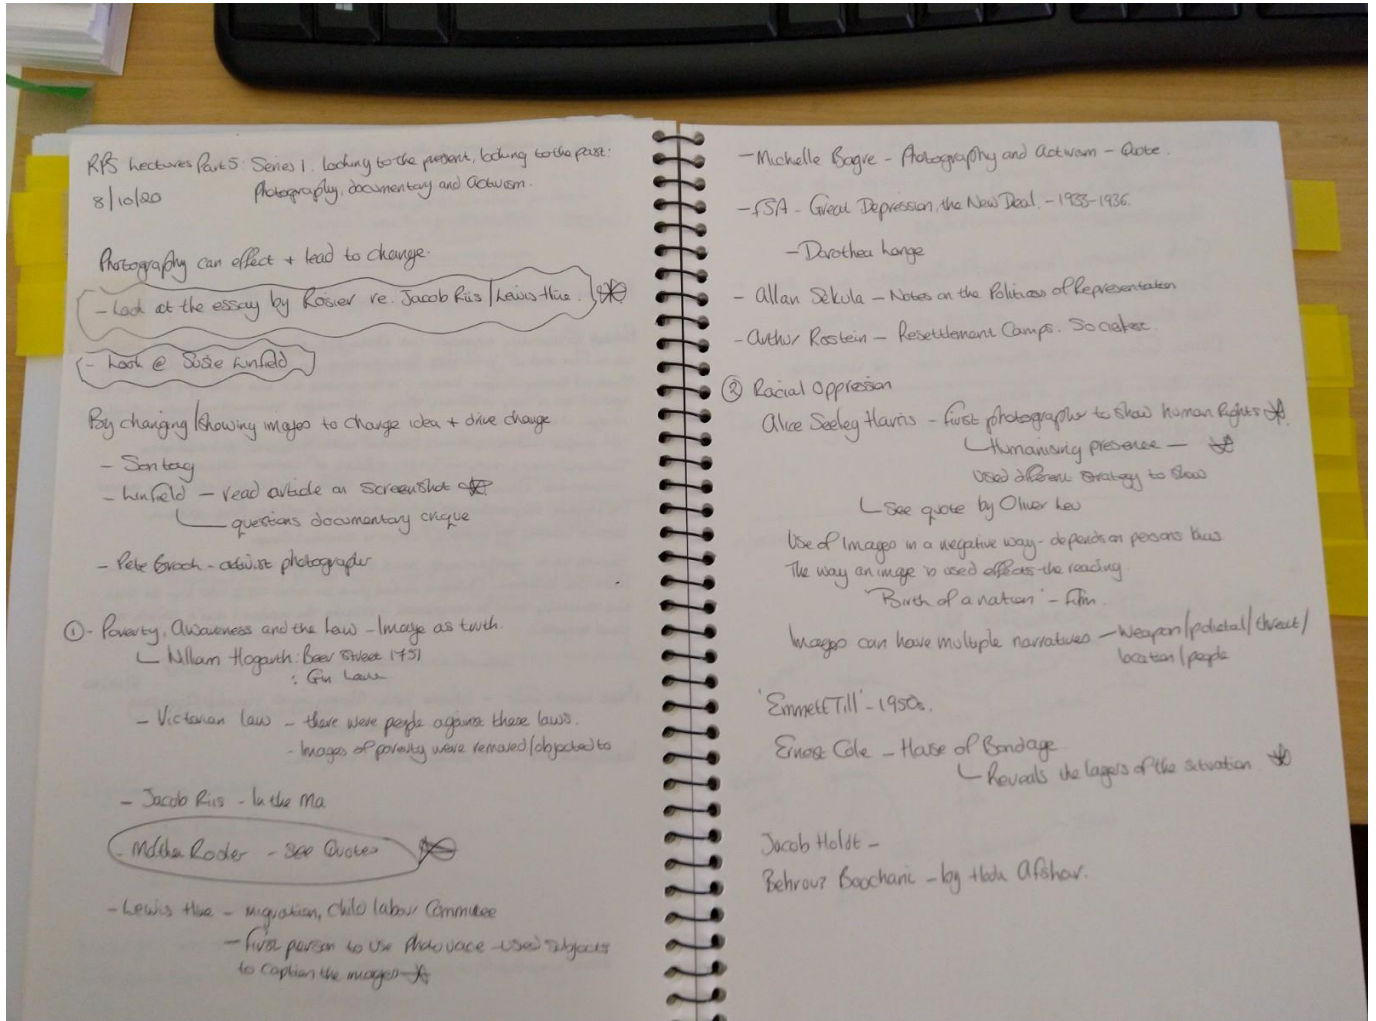 RPS Lectures Part 5: Series 1. Looking to the present, looking to the past:
8/10/20 Photography, documentary and Activism.
Photography can effect + lead to change.
- Look at the essay by Rosler re. Jacob Riis / Lewis Hine.
- Look @ Susie Linfield
By changing/showing images to change idea + drive change
- Sontag
- Linfield - read article on screenshot
questions documentary critique
- Pete Broch - activist photographer
① - Poverty, Awareness and the Law - Image as truth.
William Hogarth: Beer Street 1751
: Gin Lane
- Victorian Law - there were people against these laws.
- Images of poverty were removed/objected to
- Jacob Riis - In the Ma
- Martha Rosler - See Quotes
- Lewis Hine - migration, Child labour Committee
- First person to use photo voice - used subjects
to caption the images
- Michelle Bogre - Photography and Activism - Quote.
- FSA - Great Depression, the New Deal. - 1933-1936.
- Dorothea Lange
- Allan Sekula - Notes on the Politics of Representation
- Arthur Rostein - Resettlement Camps.
② Racial Oppression
Alice Seeley Harris - First photographer to show human Rights
Humanising presence -
Used different strategy to show
See quote by Oliver Lev
Use of Images in a negative way - depends on persons bias
The way an image is used effects the reading.
'Birth of a nation' - film.
Images can have multiple narratives - Weapon/political/threat/
location/people
'Emmett Till' - 1950s.
Ernest Cole - House of Bondage
Reveals the layers of the situation.
Jacob Holdt -
Behrouz Boochani - by Hoda Afshar.